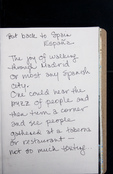 But back to Spain
España
The joy of walking
through Madrid
or most any Spanish
city.
One could hear the
buzz of people and
then turn a corner
and see people
gathered at a taberna
or restaurant
not so much today